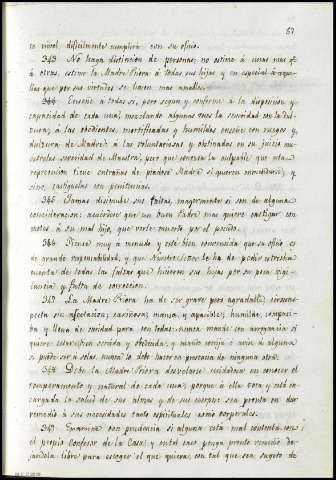 57
to nivel, dificilmente cumplirá con su oficio.
343 No haga distincion de personas; no estime á unas mas q.e
á otras, estime la Madre Priora á todas sus hijas y en especial á aque-
llas que por sus virtudes se hacen mas amables.
344 Enseñe á todas si, pero segun y conforme á la disposicion y
capacidad de cada una, mezclando algunas veces la severidad con la dul-
zura; á las obedientes, mortificadas y humildes enseñe con ruegos y
dulzura de Madre: á las voluntariosas y obstinadas en su juicio mu-
estrelas severidad de Maestra, pero que conozca la culpable que esta
reprension tiene entrañas de piadosa Madre si quieren enmendarse; y
sino, castiguelas con penitencias.
345 Jamas disimule sus faltas, mayormente si son de alguna
consideracion: acuerdese que un buen Padre mas quiere castigar con
azotes á su mal hijo, que verle muerto por el pecado.
346 Piense muy á menudo y esté bien convencida que su oficio es
de grande responsabilidad, y que Nuestro Señor le ha de pedir estrecha
cuenta de todas las faltas que hicieren sus hijas por su poca vigi-
lancia y falta de correccion.
347 La Madre Priora ha de ser grave pero agradable; circuns-
pecta sin afectacion; cariñosa; mansa, y apacible; humilde, compues-
ta y llena de caridad para con todas: nunca mande con arrogancia si
quiere ser bien servida y obedecida, y cuando corrija ó avise á alguna
si puede ser á solas, nunca lo debe hacer en presencia de ninguna otra.
348 Debe la Madre Priora desvelarse cuidadosa en conocer el
temperamento y natural de cada una; porque á ella toca y está en-
cargada la salud de sus almas y de sus cuerpos: sea pronta en dar
remedio á sus necesidades tanto espirituales como corporales.
349 Examine con prudencia si alguna está mal contenta con
el propio Confesor de la Casa; y en tal caso ponga pronto remedio de-
jandola libre para escoger el que quiera, con tal que sea sugeto de